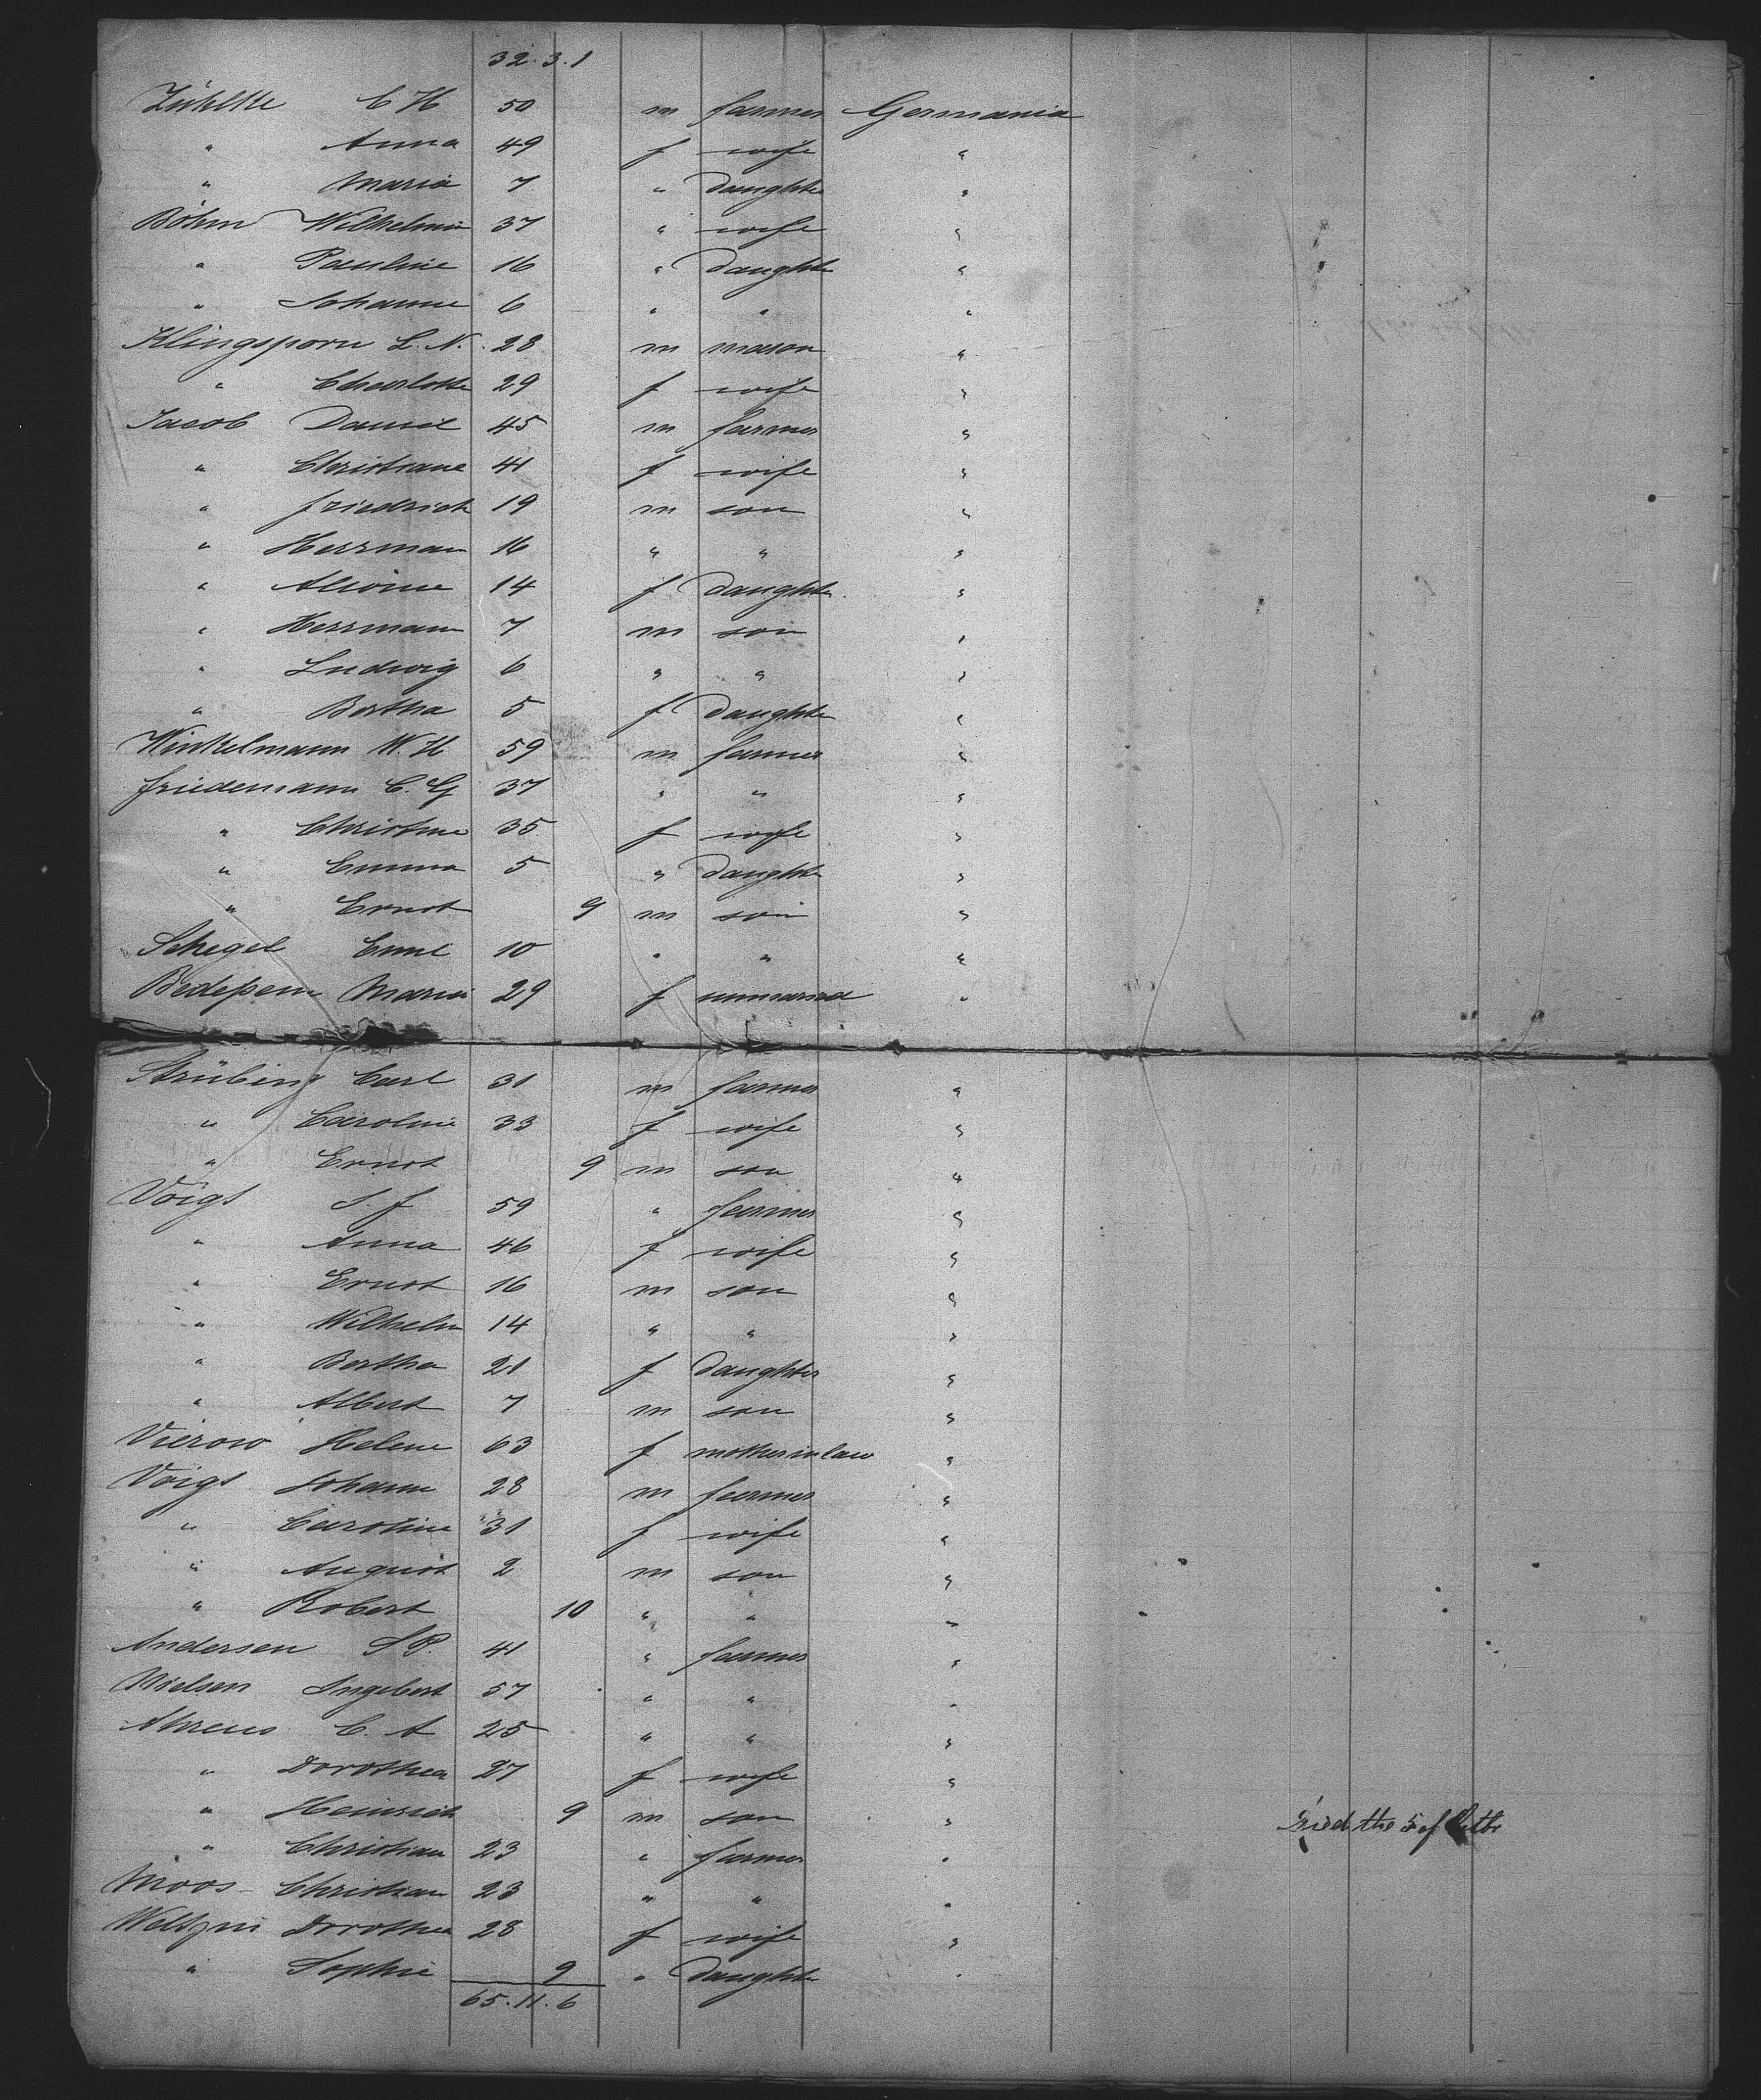 32. 3. 1
Zühlke C H 50 m farmer Germania
" Anna 49 f wife "
" Maria 7 " daughter "
Böhm Wilhelmine 37 " wife "
" Pauline 16 " daughter "
" Johanne 6 " " "
Klingsporn L. N. 28 m mason "
" Charlotte 29 f wife "
Jacob Daniel 45 m farmer "
" Christiane 41 f wife "
" Friedrich 19 m son "
" Herrman 16 " " "
" Alwine 14 f daughter "
" Herrmann 7 m son "
" Ludwig 6 " " "
" Bertha 5 f daughter "
Winkelmann W. H 59 m farmer "
Friedemann C. G 37 " " "
" Christine 35 f wife "
" Emma 5 " daughter "
" Ernst 9 m son "
Schegel Emil 10 " " "
Maria 29 f unmarried "
Strübing Carl 31 m farmer "
" Caroline 33 f wife "
" Ernst 9 m son "
Voigt J. J 59 " farmer "
" Anna 46 f wife "
" Ernst 16 m son "
" Wilhelm 14 " " "
" Bertha 21 f daughter "
" Albert 7 m son "
Vierow Helene 63 f mother in law "
Voigt Johann 28 m farmer "
" Caroline 31 f wife "
" August 2 m son "
" Robert 10 " " "
Andersen J P. 41 " farmer "
Nielsen Ingebert 57 " " "
Ahrens C. A 25 " " "
" Dorothea 27 f wife "
" Heinrich 9 m son " Died the 5 of Octbr
" Christian 23 " farmer "
Moos Christian 23 " " "
Weltzin Dorothea 28 f wife "
" Sophie 9 " daughter "
65. 11. 6